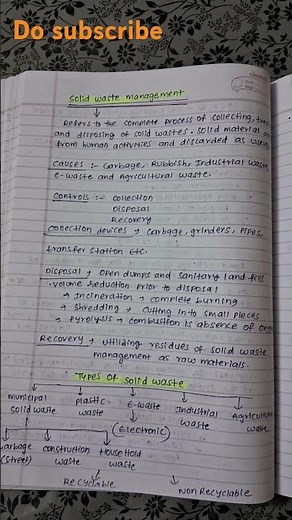 Do subscribe
Solid waste management
Refers to the complete process of collecting,
and disposing of solid wastes. Solid material
from human activities and discarded as
Causes :- Garbage, Rubbish, Industrial waste
e-waste and Agricultural waste.
Controls :- collection
Disposal
Recovery
Conection devices → Garbage, grinders, Pipes,
transfer station etc.
Disposal → Open dumps and sanitary land fills
Volume Reduction prior to disposal
→ Incineration → complete burning
→ Shredding → cutting into small pieces
→ Pyrolysis → combustion is absence of
Recovery → utilizing residues of solid waste
management as raw materials.
Types of solid waste
municipal solid waste
plastic waste
E-waste
Industrial waste
Agricultural waste
(Electronic)
Garbage (Street)
construction waste
House Hold waste
Recyclable
Non Recyclable